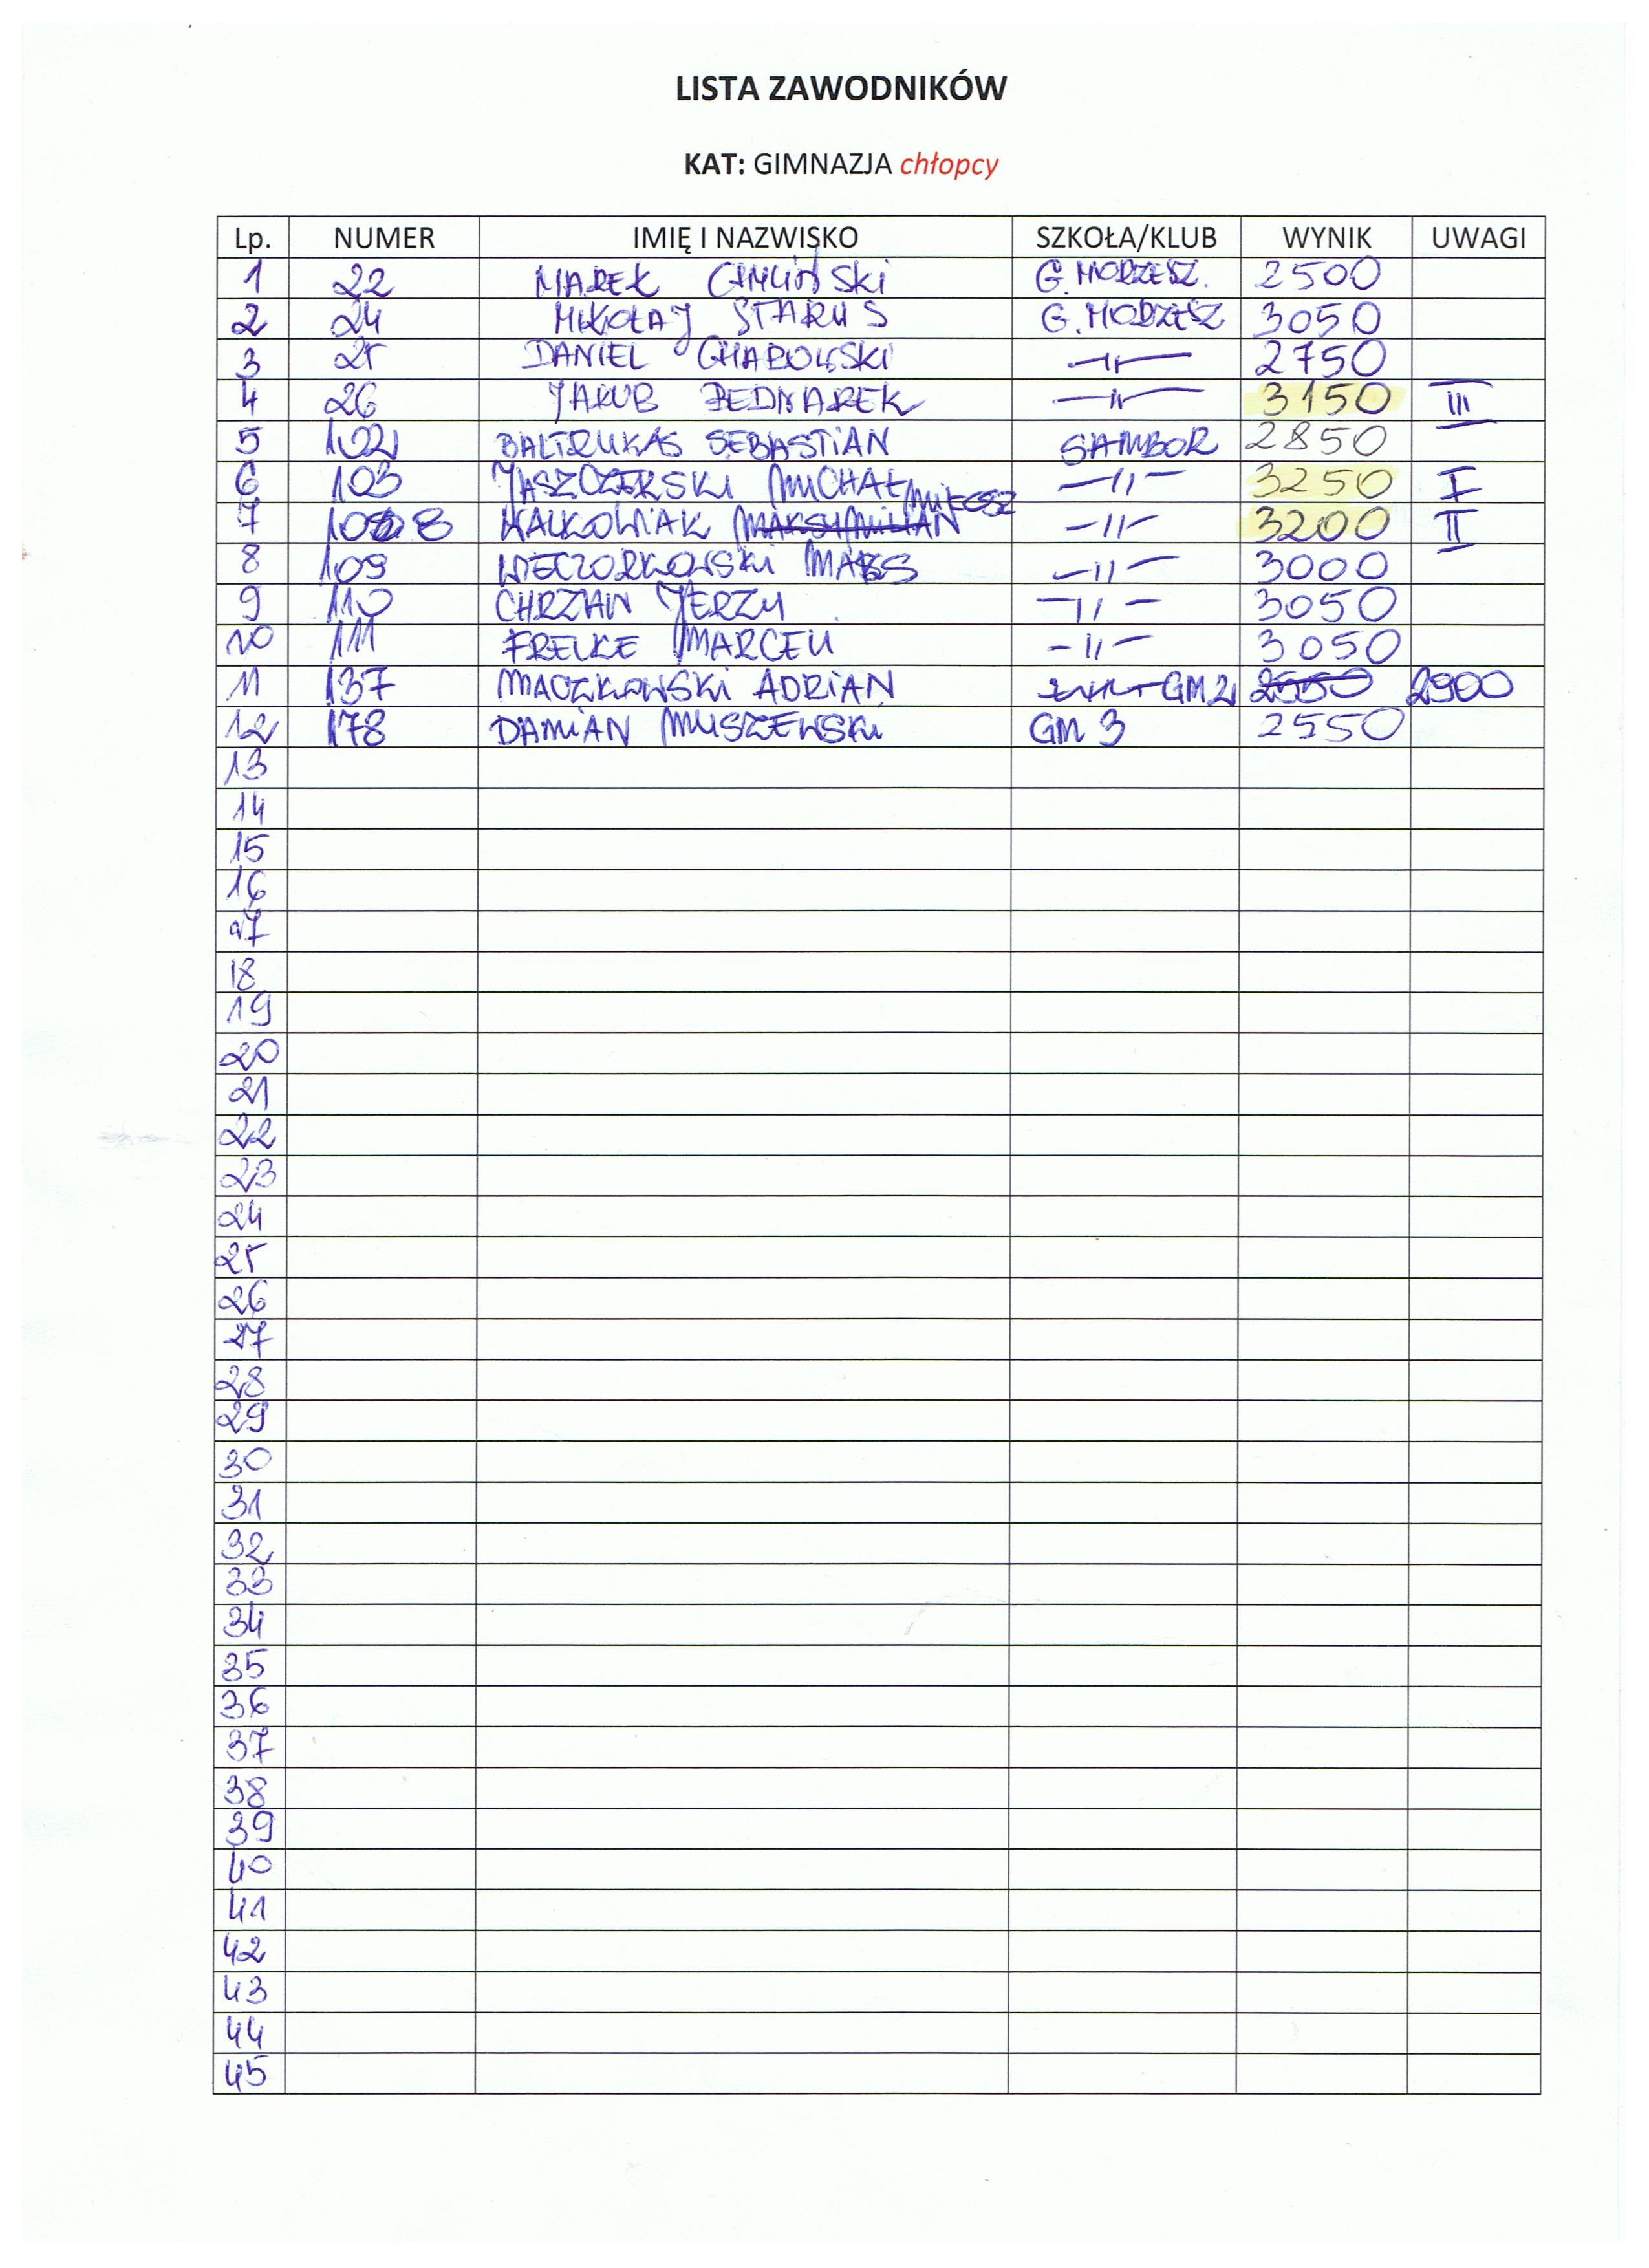 LISTA ZAWODNIKÓW
KAT: GIMNAZJA chłopcy
Lp. NUMER IMIĘ I NAZWISKO SZKOŁA/KLUB WYNIK UWAGI
1 22 MAREK G. MORZESZ. 2500
2 24 MIKOŁAJ STARUS G. MORZESZ 3050
3 25 DANIEL —11— 2750
4 26 JAKUB BEDNAREK —11— 3150 III
5 102 BALTRUKAS SEBASTIAN SAMBOR 2850
6 103 JASZCZERSKI MICHAŁ —11— 3250 I
7 108 MAKSYMILIAN MIŁOSZ —11— 3200 II
8 109 WIECZORKOWSKI —11— 3000
9 110 CHRZAN JERZY —11— 3050
10 111 FRELKE MARCELI —11— 3050
11 137 MACZKOWSKI ADRIAN GM 2 2550 2900
12 178 DAMIAN MUSZEWSKI GM 3 2550
13
14
15
16
17
18
19
20
21
22
23
24
25
26
27
28
29
30
31
32
33
34
35
36
37
38
39
40
41
42
43
44
45